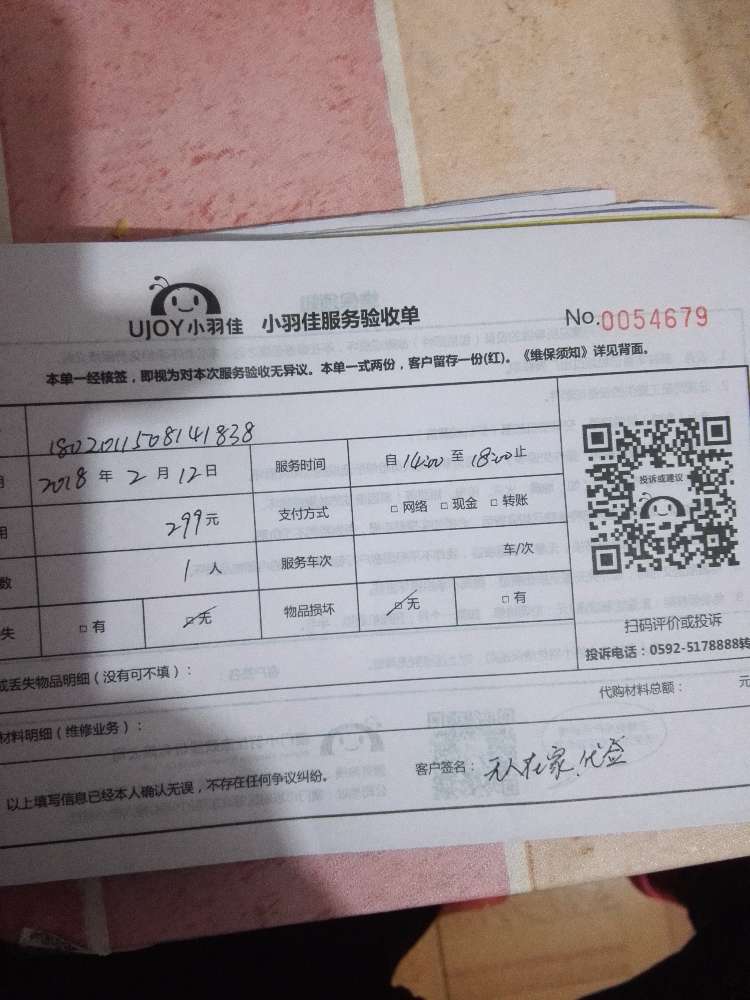 UJOY小羽佳 小羽佳服务验收单 No.0054679
本单一经核签，即视为对本次服务验收无异议。本单一式两份，客户留存一份(红)。《维保须知》详见背面。
1802011508141838
月 2018 年 2 月 12 日 服务时间 自 14:00 至 18:00 止
用 299 元 支付方式 □ 网络 □ 现金 □ 转账
数 1 人 服务车次 车/次
失 □ 有 □ 无 物品损坏 □ 无 □ 有
投诉或建议
扫码评价或投诉
投诉电话：0592-5178888转
或丢失物品明细（没有可不填）：
代购材料总额： 元
材料明细（维修业务）：
以上填写信息已经本人确认无误，不存在任何争议纠纷。
客户签名： 无人在家、代签